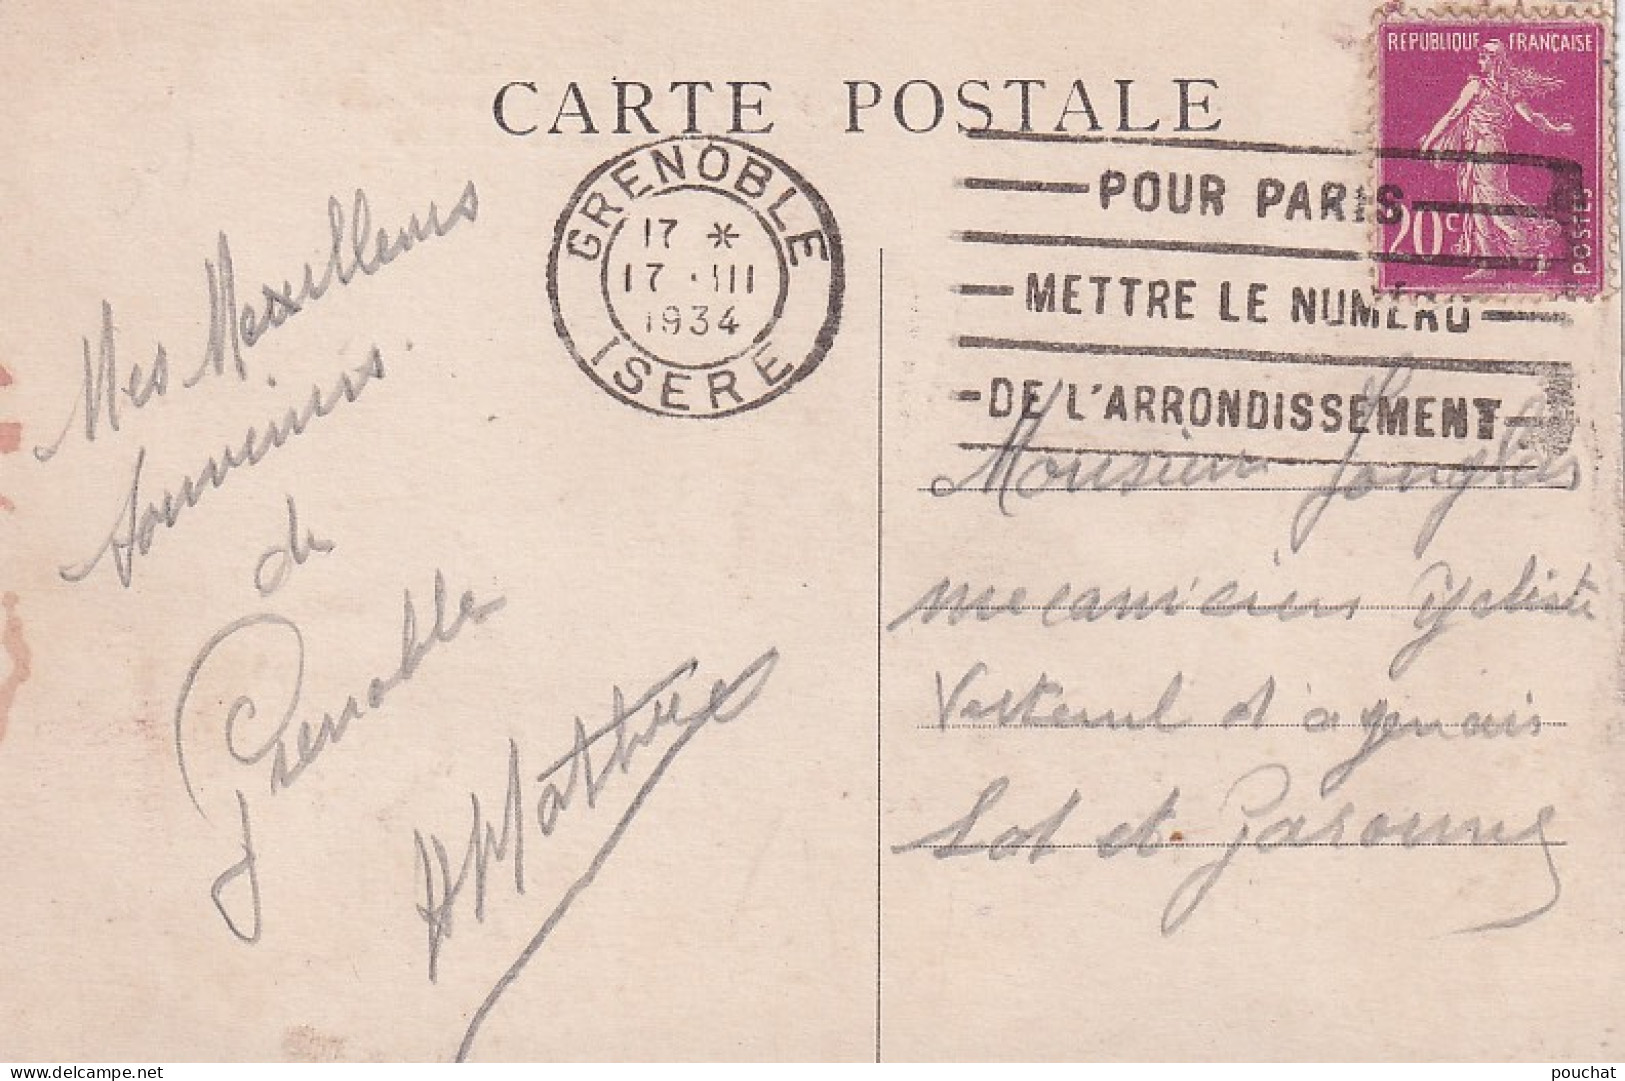 CARTE POSTALE
REPUBLIQUE FRANÇAISE
20c
POSTES
GRENOBLE
17 *
17 · III
1934
ISERE
POUR PARIS
METTRE LE NUMERO
DE L'ARRONDISSEMENT
Mes Meilleurs
souvenirs.
de
Grenoble
Monsieur
mecanicien Cycliste
Verteuil d'agenais
Lot et Garonne
delcampe.net
pouchat